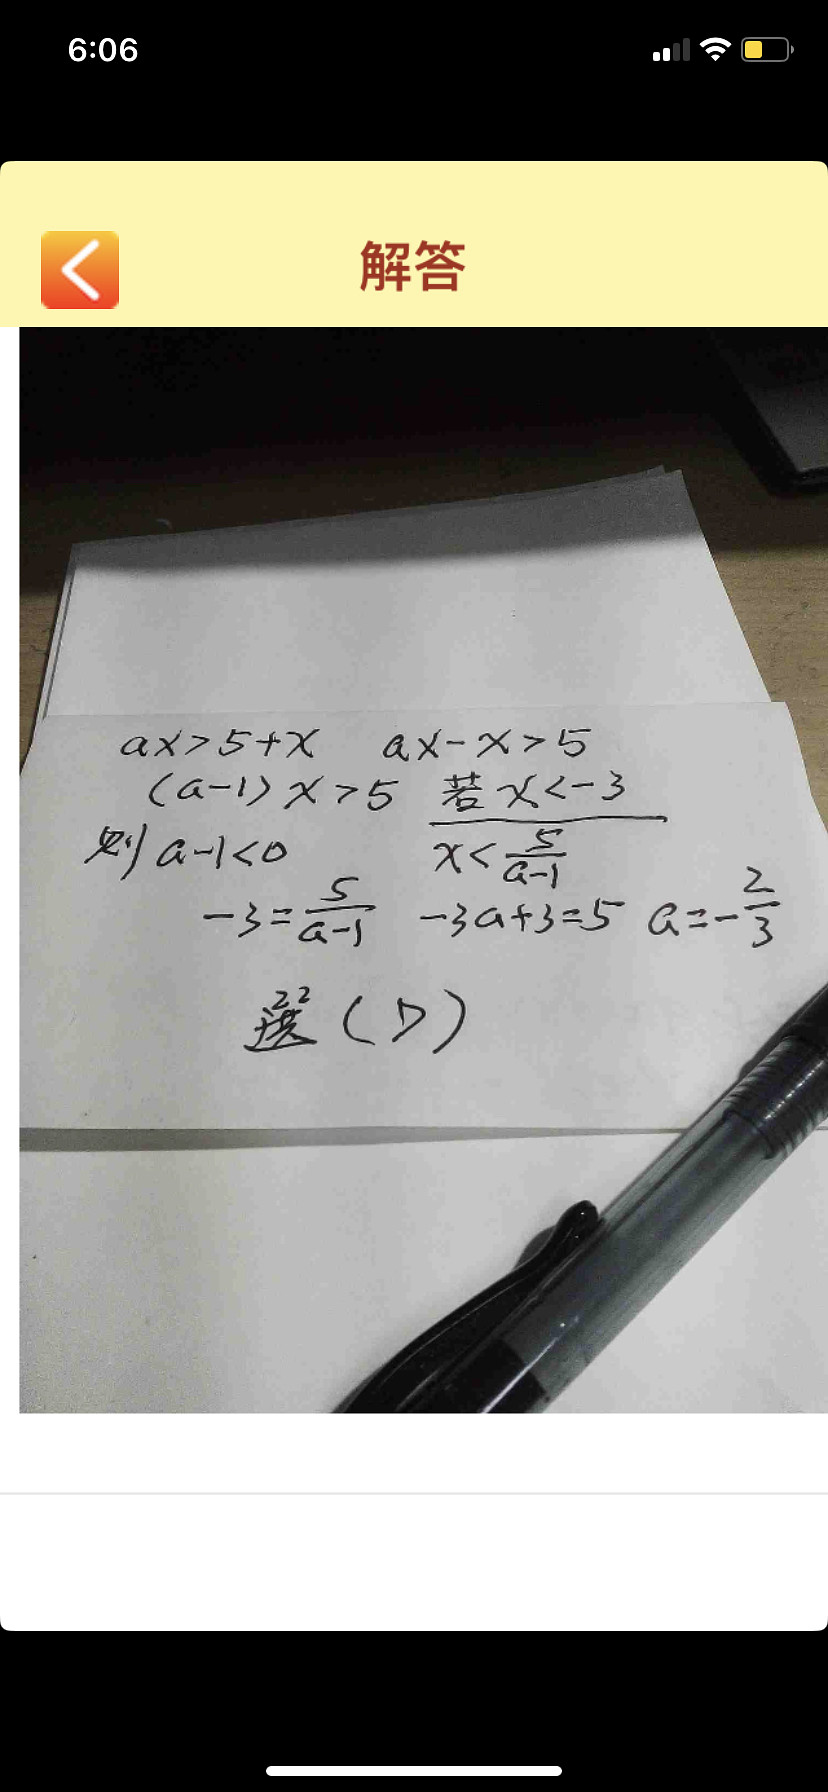 6:06
解答
ax>5+x ax-x>5
(a-1)x>5 若x<-3
則a-1<0 x<5/(a-1)
-3=5/(a-1) -3a+3=5 a=-2/3
選(D)